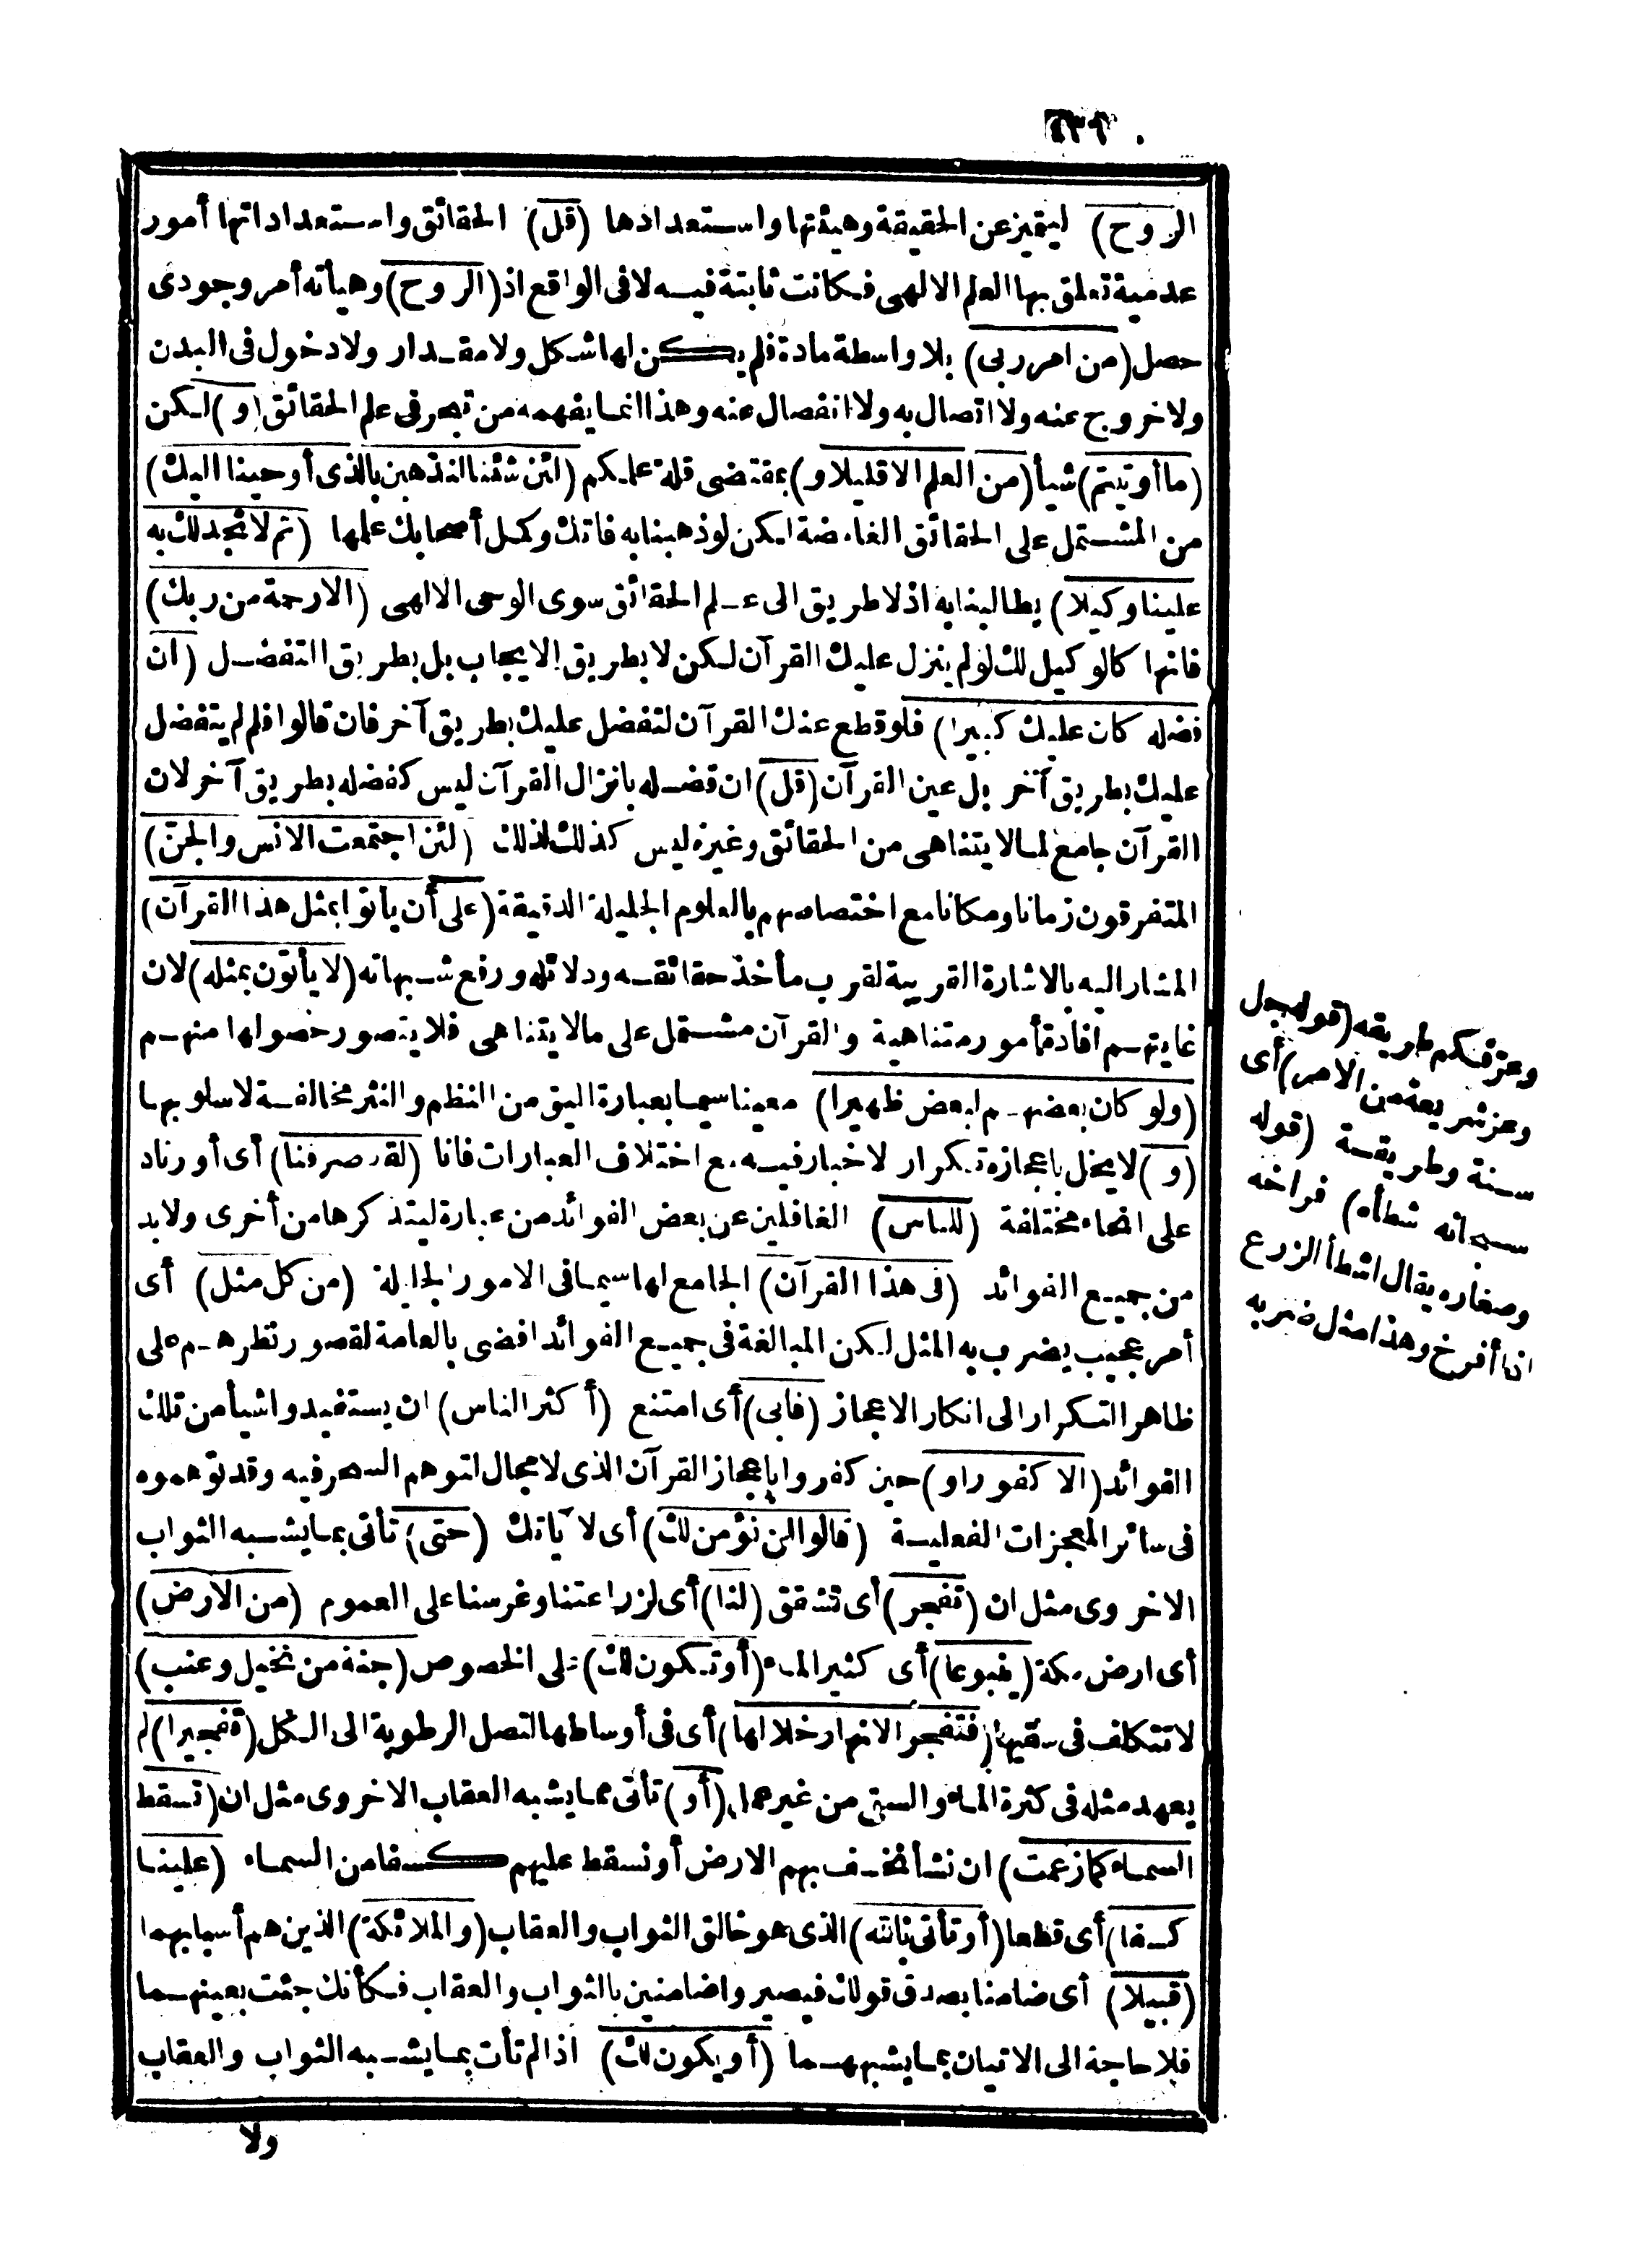 الروح) ليتميز عن الحقيقة وهيئتها واستعدادها (قل) الحقائق واستعداداتها أمور
عدمية تعلق بها العلم الالهى فكانت ثابتة فيه لا فى الواقع اذ (الروح) وهيأته أمر وجودى
حصل (من امر ربى) بلا واسطة مادة فلم يكن لها شكل ولا مقدار ولا دخول فى البدن
ولا خروج عنه ولا اتصال به ولا انفصال عنه وهذا انما يفهمه من تبحر فى علم الحقائق (و) لكن
(ما أوتيتم) شيأ (من العلم الا قليلا و) بمقتضى قلة علمكم (لئن شئنا لنذهبن بالذى أوحينا اليك)
من المشتمل على الحقائق الغامضة لكن لو ذهبنا به فاتك وكمل أصحابك علمها (ثم لا تجد لك به
علينا وكيلا) يطالبنا به اذ لا طريق الى علم الحقائق سوى الوحى الالهى (الا رحمة من ربك)
فانها كالوكيل لك لو لم ينزل عليك القرآن لكن لا بطريق الايجاب بل بطريق التفضل (ان
فضله كان عليك كبيرا) فلو قطع عنك القرآن لتفضل عليك بطريق آخر فان قالوا فلم لم يتفضل
عليك بطريق آخر بل عين القرآن (قل) ان فضله بانزال القرآن ليس كفضله بطريق آخر لان
القرآن جامع لما لا يتناهى من الحقائق وغيره ليس كذلك لذلك (لئن اجتمعت الانس والجن)
المتفرقون زمانا ومكانا مع اختصاصهم بالعلوم الجليلة الدقيقة (على أن يأتوا بمثل هذا القرآن)
المشار اليه بالاشارة القريبة لقرب مأخذ حقائقه ودلائله ورفع شبهاته (لا يأتون بمثله) لان
غايتهم افادة أمور متناهية والقرآن مشتمل على ما لا يتناهى فلا يتصور حصولها منهم
(ولو كان بعضهم لبعض ظهيرا) معينا سيما بعبارة اليق من النظم والنثر مخالفة لاسلوبها
(و) لا يخل باعجازه تكرار لاخبار فيه مع اختلاف العبارات فانا (لقد صرفنا) أى أوردناه
على انحاء مختلفة (للناس) الغافلين عن بعض الفوائد من عبارة ليتذكرها من أخرى ولا بد
من جميع الفوائد (فى هذا القرآن) الجامع لها سيما فى الامور الجليلة (من كل مثل) أى
أمر عجيب يضرب به المثل لكن المبالغة فى جميع الفوائد افضى بالعامة لقصور نظرهم على
ظاهر التكرار الى انكار الاعجاز (فابى) أى امتنع (أكثر الناس) ان يستفيدوا شيأ من تلك
الفوائد (الا كفورا و) حين كفروا باعجاز القرآن الذى لا مجال لتوهم السحر فيه وقد توهموه
فى سائر المعجزات الفعلية (قالوا لن نؤمن لك) أى لآياتك (حتى) تأتى بما يشبه الثواب
الاخروى مثل ان (تفجر) أى تشقق (لنا) أى لزراعتنا وغرسنا على العموم (من الارض)
أى ارض مكة (ينبوعا) أى كثير الماء (أو تكون لك) على الخصوص (جنة من نخيل وعنب)
لا تتكلف فى سقيها (فتفجر الانهار خلالها) أى فى أوساطها لتصل الرطوبة الى الكل (تفجيرا) لم
يعهد مثله فى كثرة الماء والسقى من غيرهما (أو) تأتى بما يشبه العقاب الاخروى مثل ان (تسقط
السماء كما زعمت) ان نشأ نخسف بهم الارض أو نسقط عليهم كسفا من السماء (علينا
كسفا) أى قطعا (أو تأتى بالله) الذى هو خالق الثواب والعقاب (والملائكة) الذين هم أسبابهما
(قبيلا) أى ضامنا بصدق قولك فيصيروا ضامنين بالثواب والعقاب فكأنك جئت بعينهما
فلا حاجة الى الاتيان بما يشبههما (أو يكون لك) اذا لم تأت بما يشبه الثواب والعقاب
ولا
وعزفكم طريقه (قوله جل
وعز شريعة من الامر) أى
سنة وطريقة (قوله
سبحانه شطأه) فراخه
وصغاره يقال اشطأ الزرع
اذا أفرخ وهذا مثل ضربه